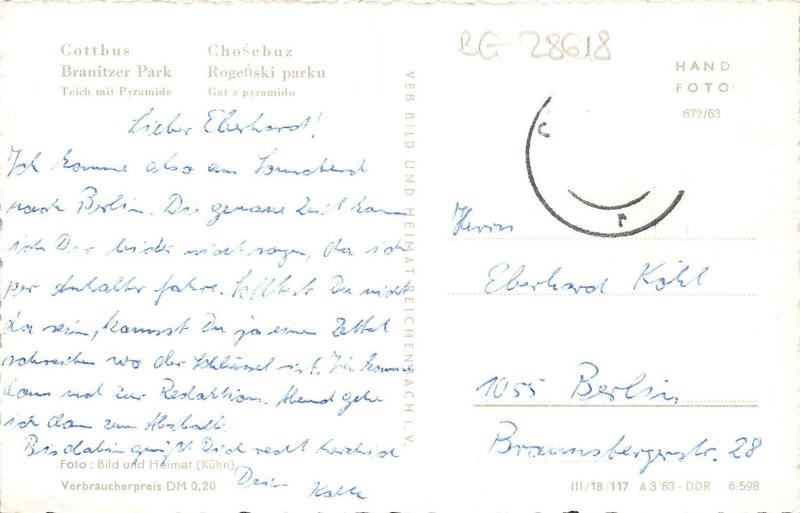 Cottbus
Branitzer Park
Teich mit Pyramide
Chośebuz
Rogeński parku
Gat z pyramidu
BG 28618
HAND
FOTO
672/63
VEB BILD UND HEIMAT REICHENBACH i. V.
Lieber Eberhard!
Ich komme also am Sonnabend
nach Berlin. Die genaue Zeit kann
ich Dir leider nicht sagen, da ich
per Anhalter fahre. Solltest Du nicht
da sein, kannst Du ja einen Zettel
schreiben wo der Schlüssel ist. Ich komme
dann mal zur Redaktion. Abend gehe
ich dann zum
Bis dahin grüßt Dich recht herzlich
Dein
Herrn
Eberhard Köhl
1055 Berlin
Braunsbergerstr. 28
Foto: Bild und Heimat (Kühn)
Verbraucherpreis DM 0,20
III/18/117 A 3'63 - DDR 6/598